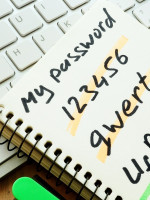 My password
123456
qwert